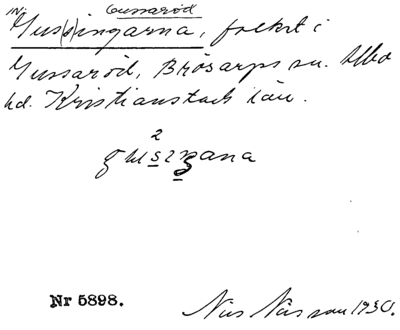 Gussaröd
Gus(s)ingarna, folket i
Gussaröd, Brösarps sn. Albo
hd. Kristianstads län.
2
Nr 5898.
Nils Nilsson 1930.